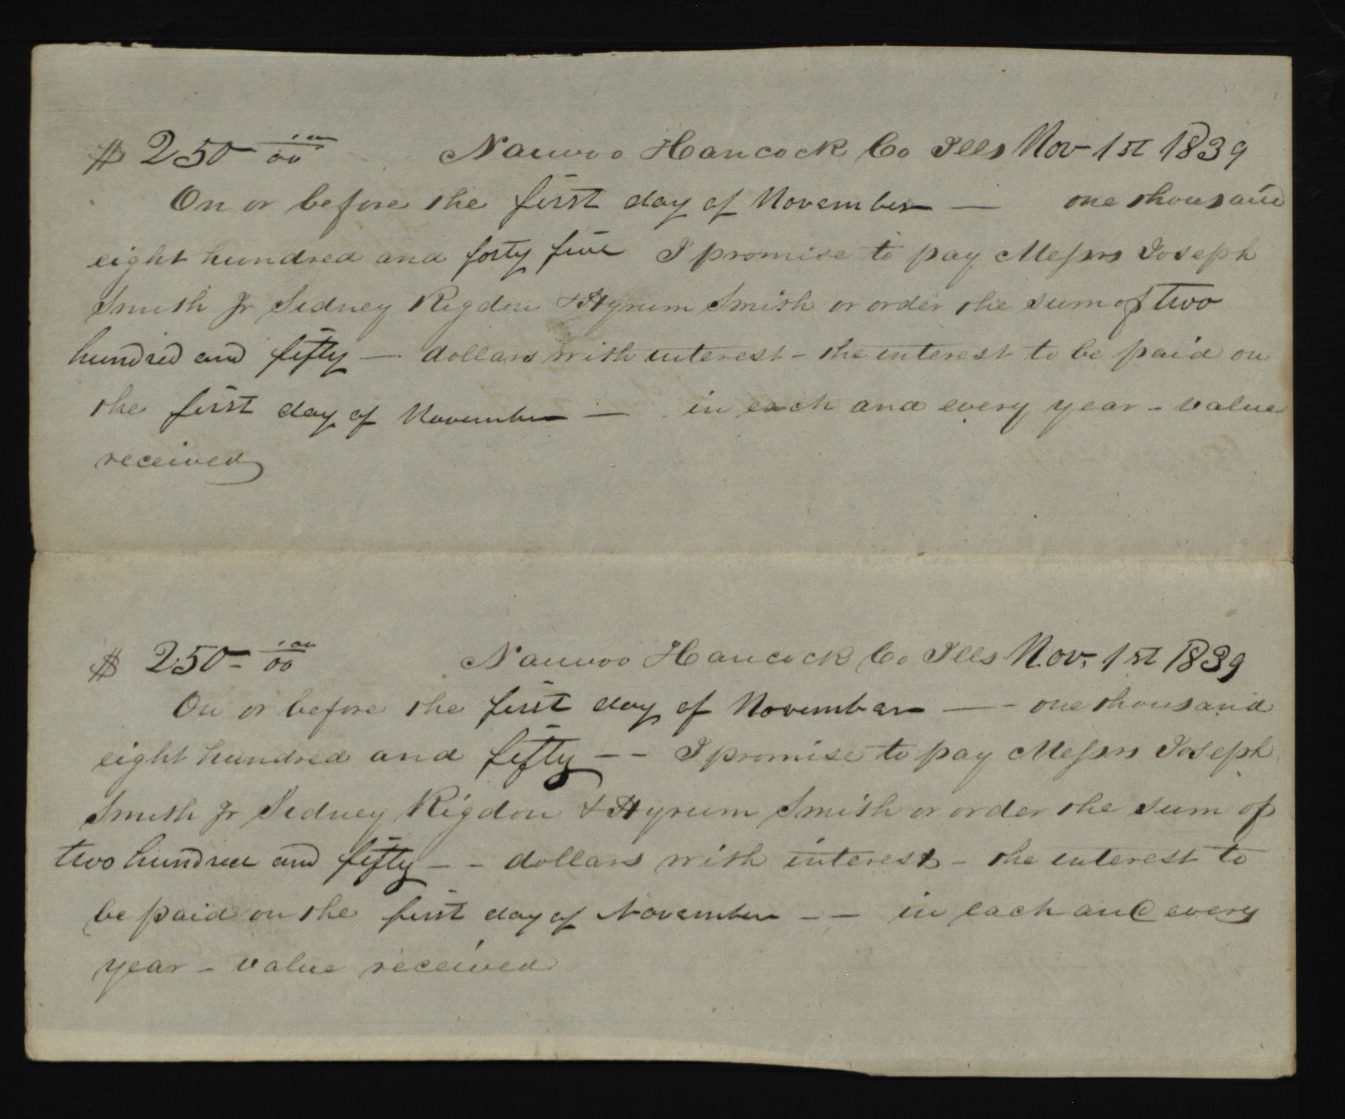 $ 250 00/100 Nauvoo Hancock Co Ills Nov 1st 1839
On or before the first day of November — one thousand
eight hundred and forty five I promise to pay Messrs Joseph
Smith Jr Sidney Rigdon & Hyrum Smith or order the sum of two
hundred and fifty — dollars with interest - the interest to be paid on
the first day of November — in each and every year - value
received
$ 250 - 00/100 Nauvoo Hancock Co Ills Nov. 1st 1839
On or before the first day of November — - one thousand
eight hundred and fifty - - I promise to pay Messrs Joseph
Smith Jr Sidney Rigdon & Hyrum Smith or order the sum of
two hundred and fifty - - dollars with interest - the interest to
be paid on the first day of November - - in each and every
year - value received